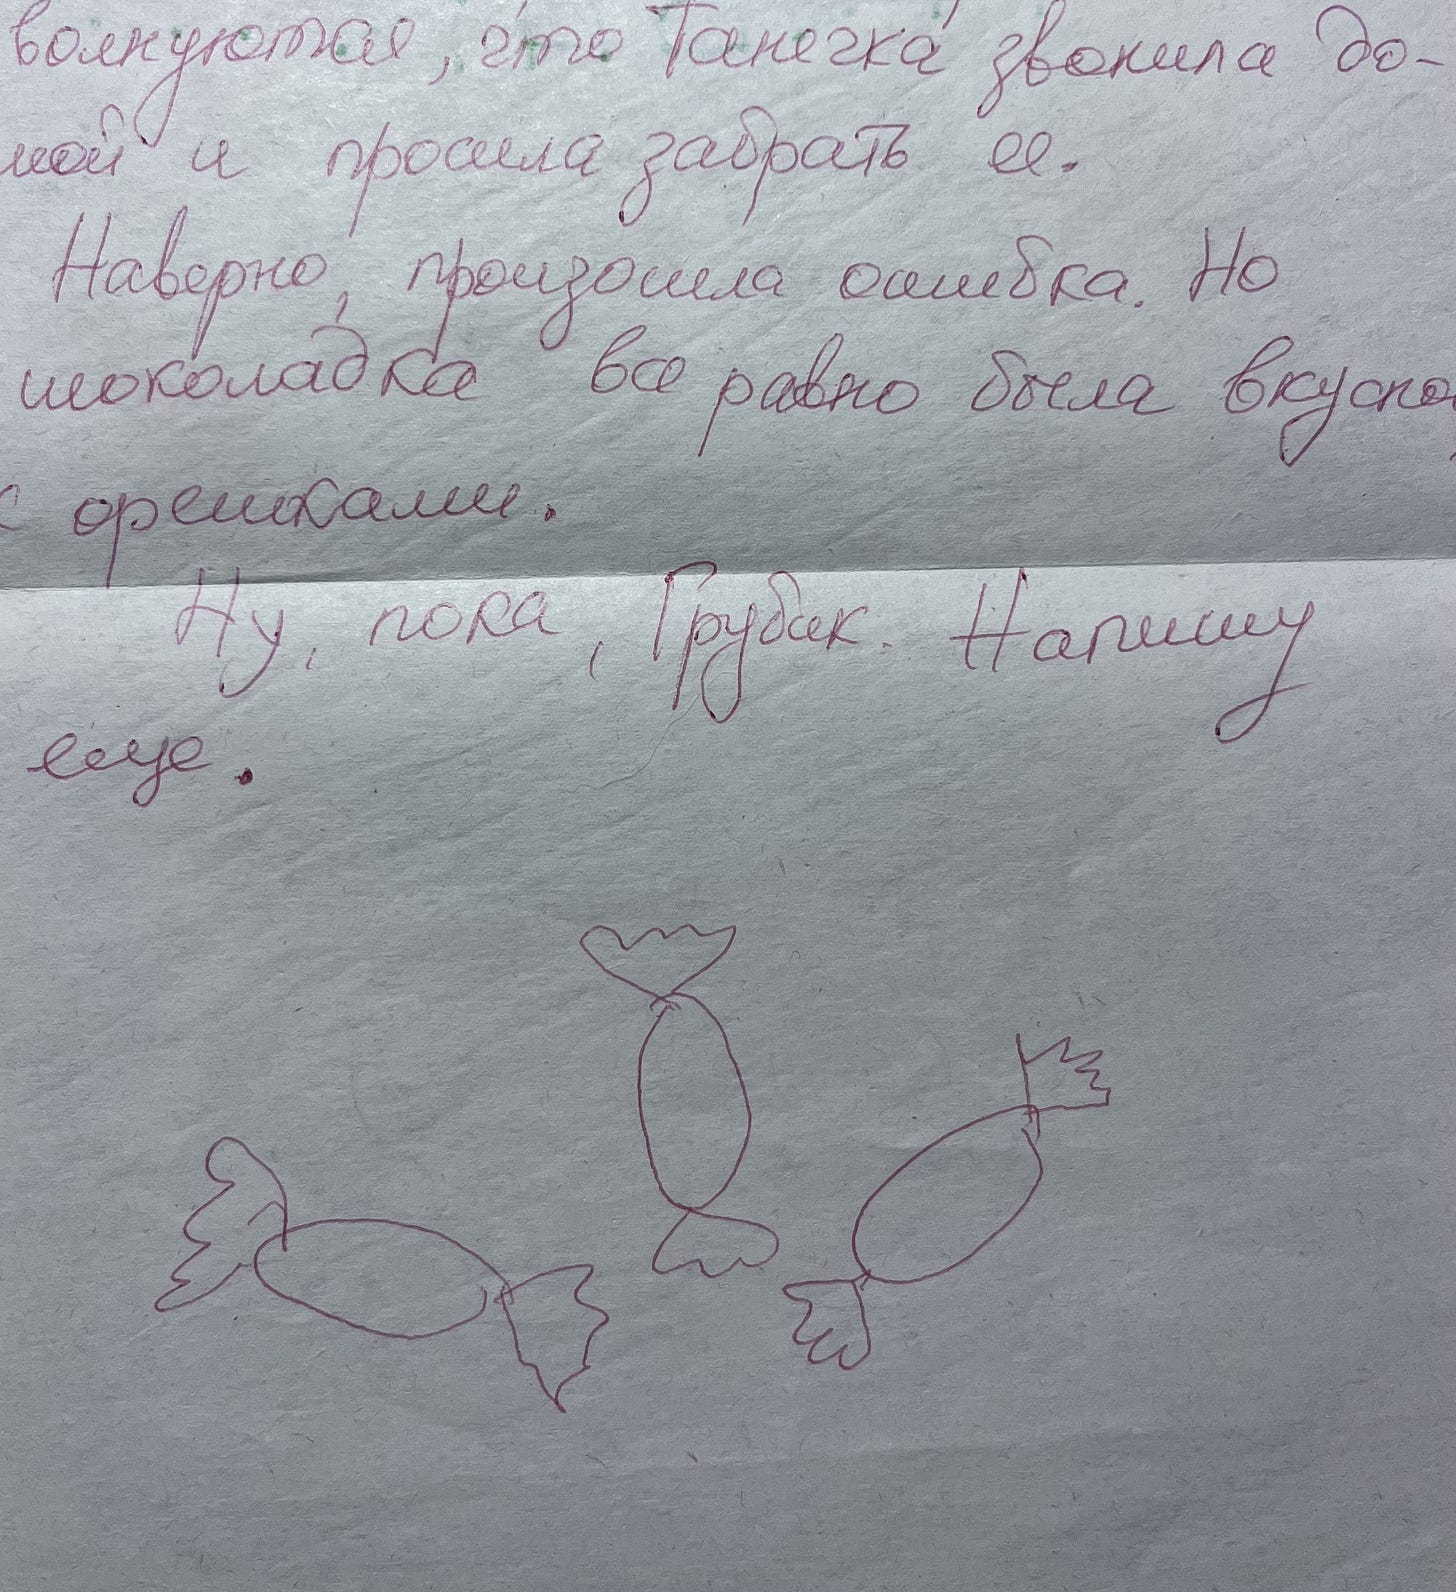 волнуются, что Танечка звонила до-
мой и просила забрать ее.
Наверно, произошла ошибка. Но
шоколадка все равно была вкусная,
с орешками.
Ну, пока, Грубик. Напишу
еще.